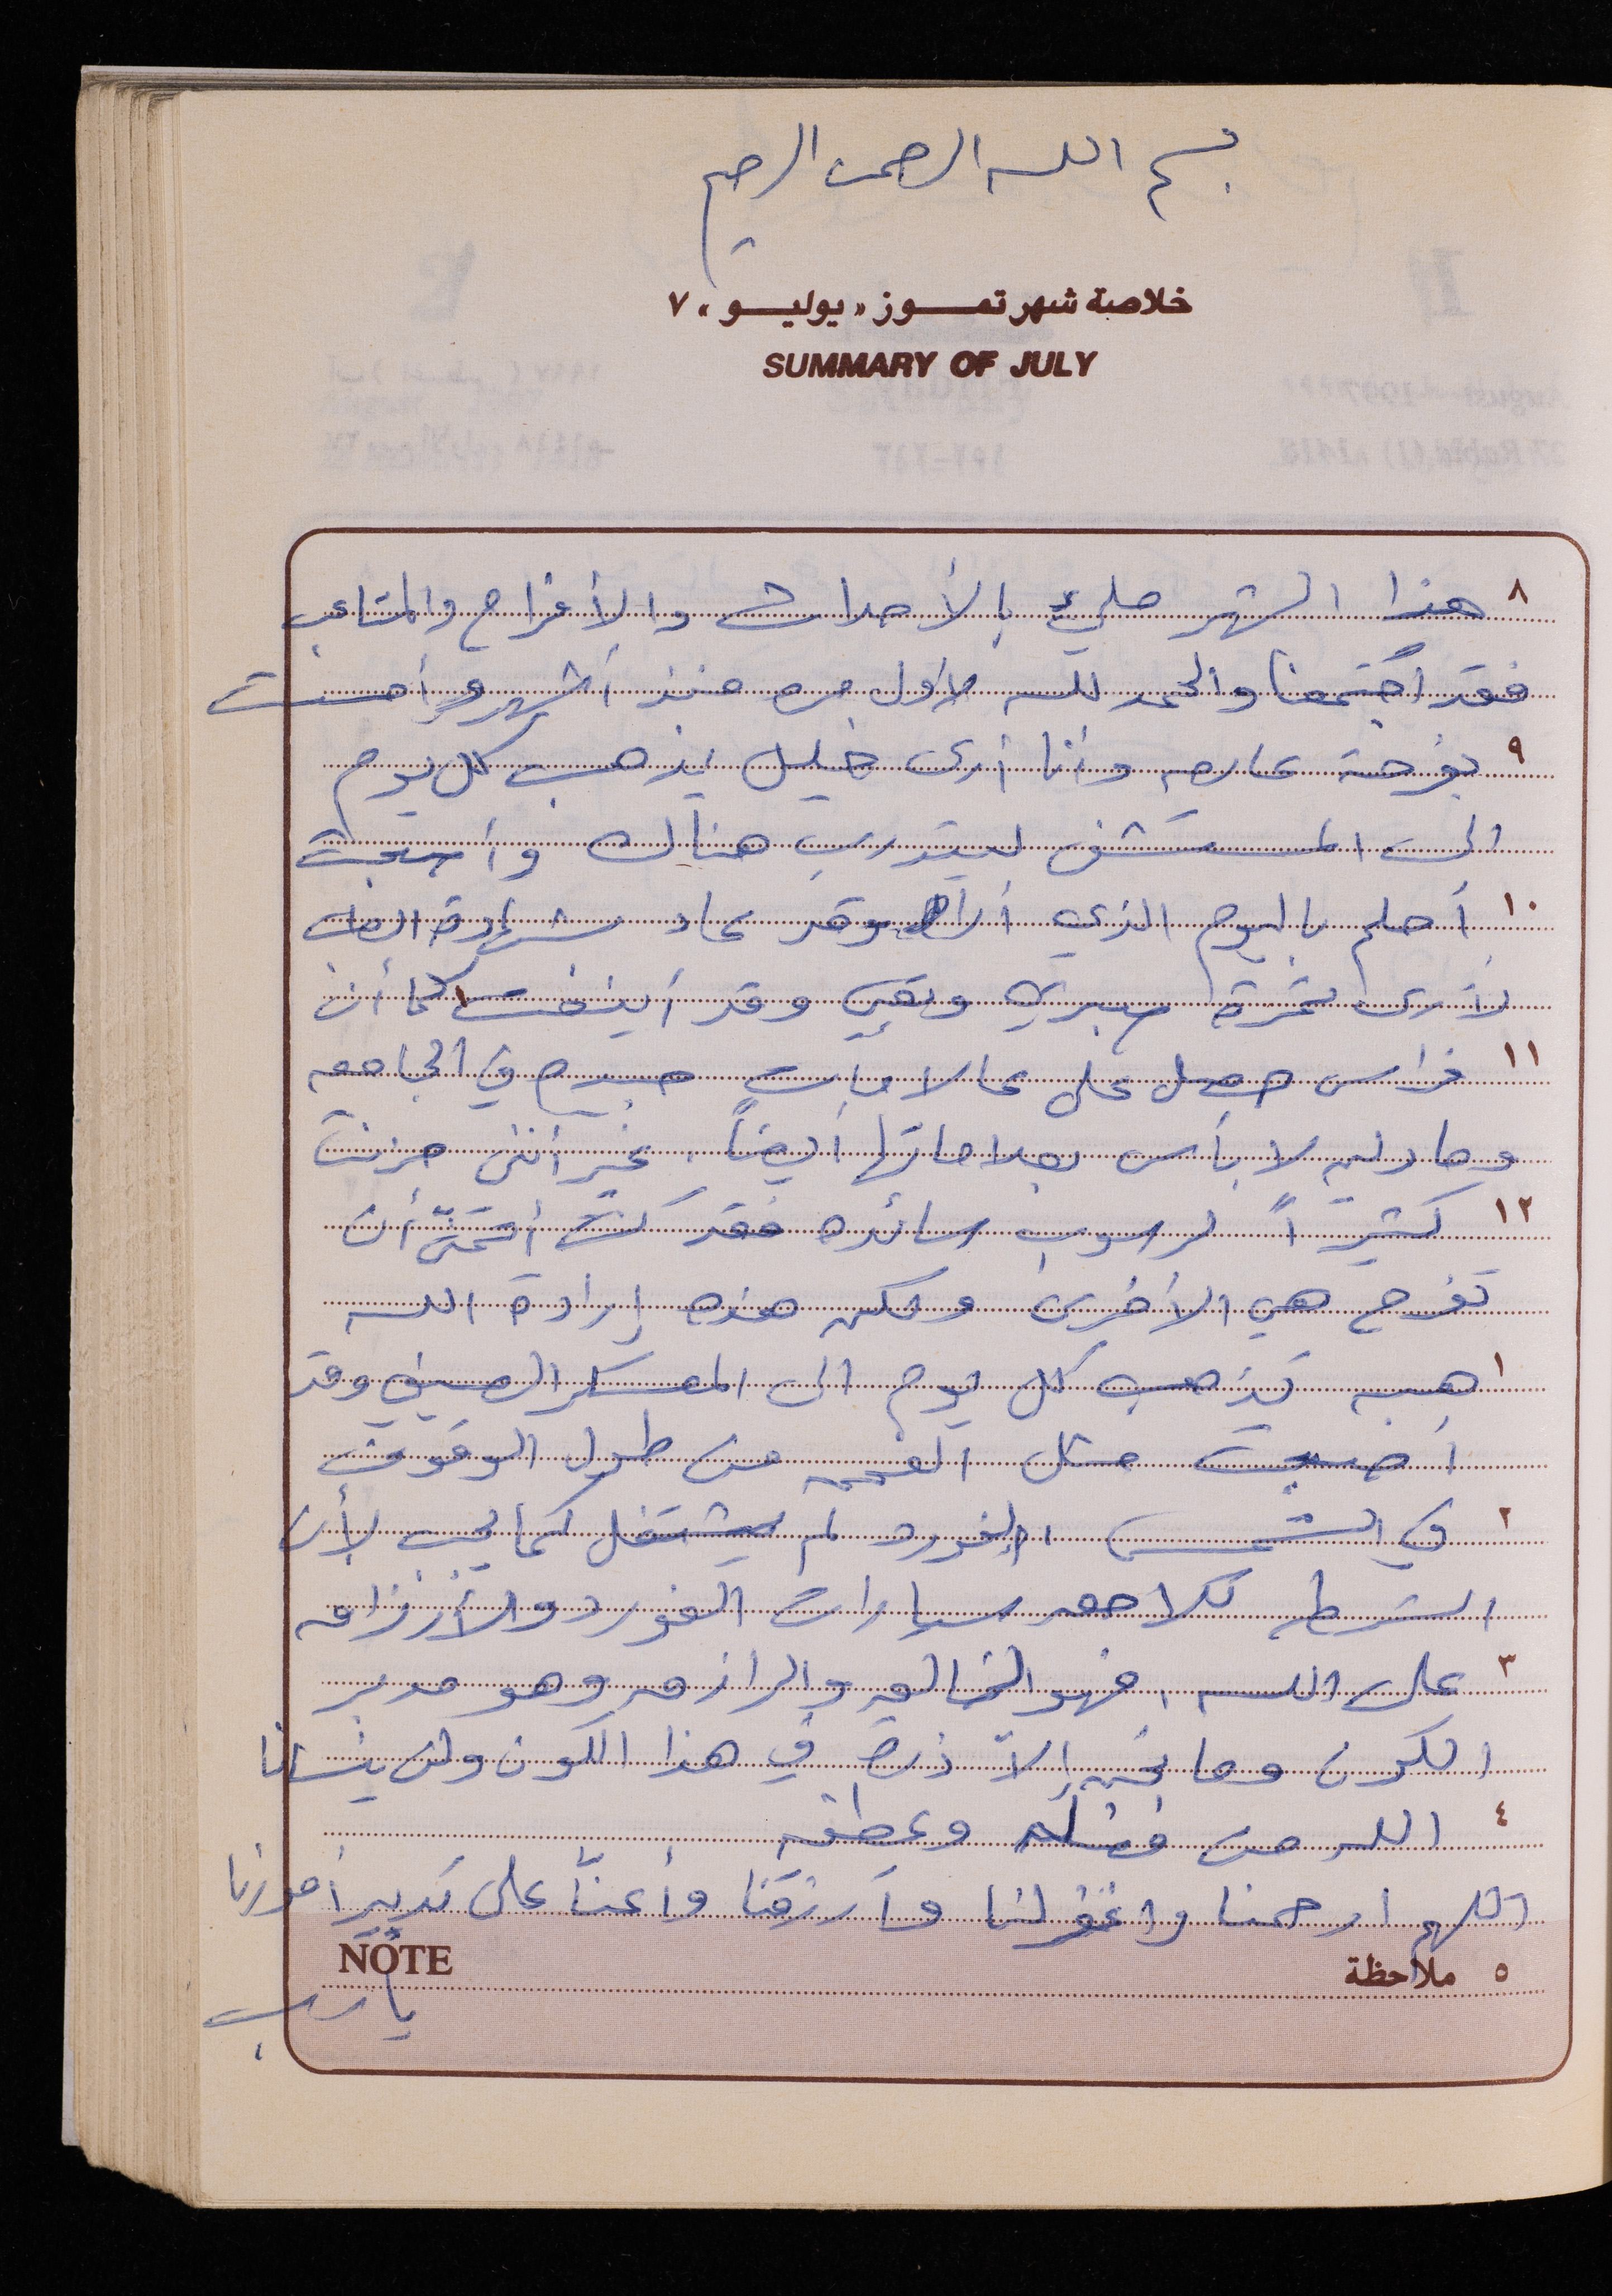 بسم الله الرحمن الرحيم
خلاصة شهر تموز «يوليو» ٧
SUMMARY OF JULY
٨ هذا الشهر مليء بالأحداث والأفراح والمتاعب
فقد اجتمعنا والحمد لله لأول مره منذ أشهر وأحسست
٩ بفرحة عارمه وأنا أرى خليل يذهب كل يوم
الى المستشفى ليتدرب هناك وأصبحت
١٠ أحلم باليوم الذي أراه وقد عاد بشهادة الطب
لأرى ثمرة صبري وتعبي وقد أينعت كما أن
١١ فراس حصل على علامات جيده في الجامعه
ومادلين لا بأس بعلاماتها أيضاً. غير أنني حزنت
١٢ كثيراً لرسوب سائده فقد كنت أتمنى أن
تفرح هي الأخرى ولكن هذه إرادة الله
١ هبه تذهب كل يوم الى المعسكر الصيفي وقد
أصبحت مثل الفحمه من طول الوقوف
٢ في الشمس، الفورد لم يشتغل كما يجب لأن
الشرطه تلاحق سيارات الفورد والأرزاق
٣ على الله، فهو الخالق والرازق وهو مدبر
الكون وما نحن إلا ذرة في هذا الكون ولن ينسانا
٤ الله من فضله وعطفه
اللهم ارحمنا واغفر لنا وارزقنا وأعنّا على تدبير أمورنا
NOTE
٥ ملاحظة
يا رب